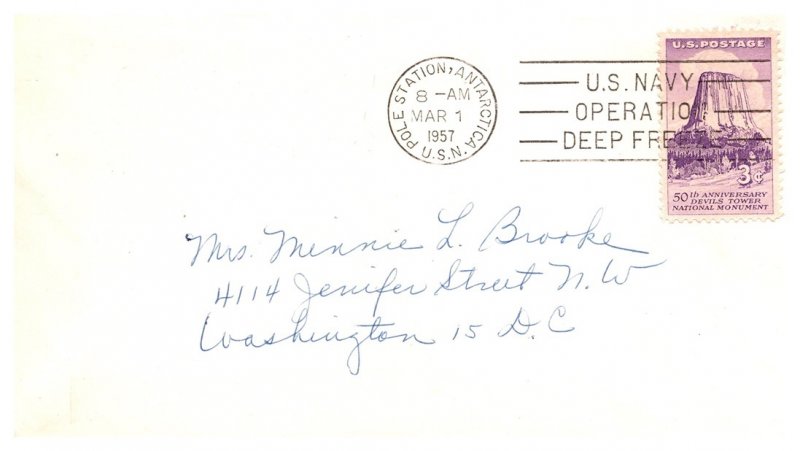 U.S. POSTAGE
POLE STATION, ANTARCTICA
8 -AM
MAR 1
1957
U.S.N.
U.S. NAVY
OPERATION
DEEP FREEZE
3¢
50th ANNIVERSARY
DEVILS TOWER
NATIONAL MONUMENT
Mrs. Minnie L. Brooke
4114 Jenifer Street N.W
Washington 15 D.C